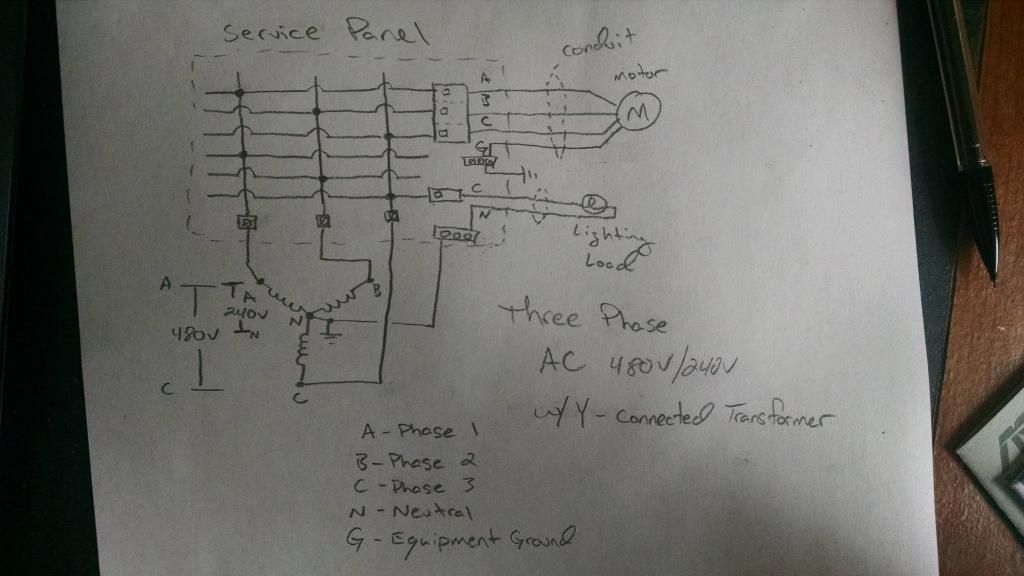 Service Panel
conduit
motor
A
B
C
G
M
C
N
Lighting
Load
A
A
240V
N
480V
C
B
N
C
Three Phase
AC 480V/240V
w/ Y-Connected Transformer
A-Phase 1
B-Phase 2
C-Phase 3
N-Neutral
G-Equipment Ground